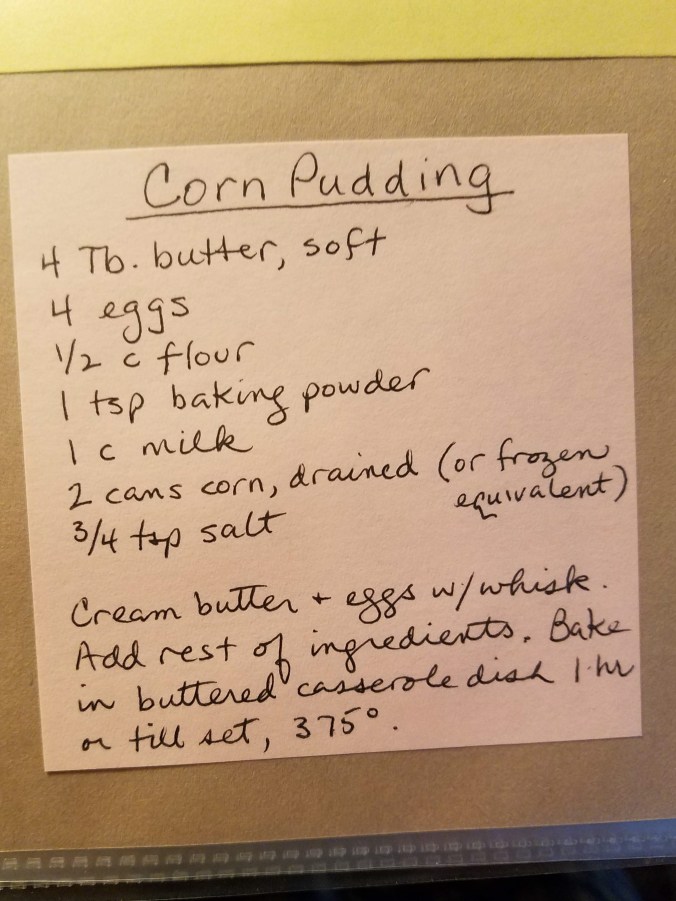 Corn Pudding
4 Tb. butter, soft
4 eggs
1/2 c flour
1 tsp baking powder
1 c milk
2 cans corn, drained (or frozen
equivalent)
3/4 tsp salt
Cream butter + eggs w/whisk.
Add rest of ingredients. Bake
in buttered casserole dish 1 hr
or till set, 375°.